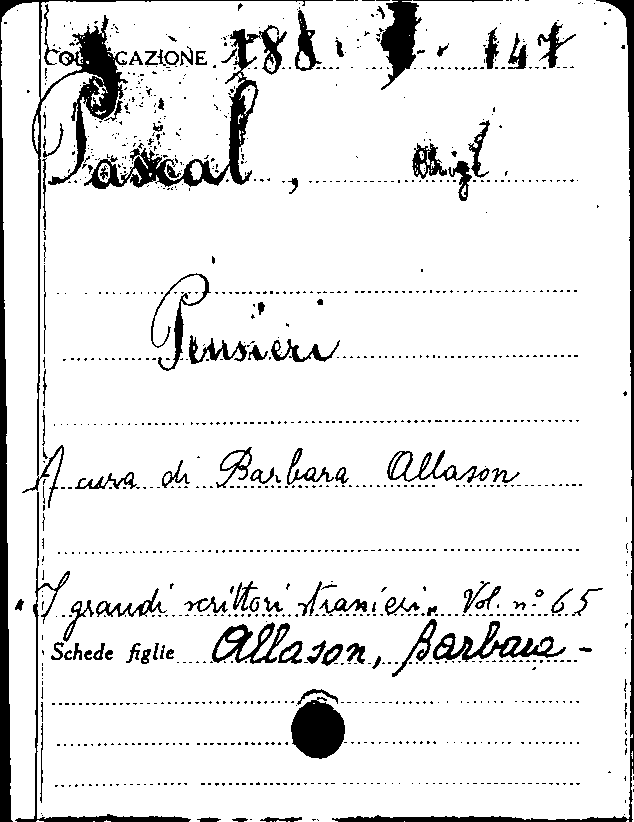 COLLOCAZIONE 188. . 147
Pascal,
Pensieri
A cura di Barbara Allason
"I grandi scrittori stranieri„ Vol. n° 65
Schede figlie Allason, Barbara -